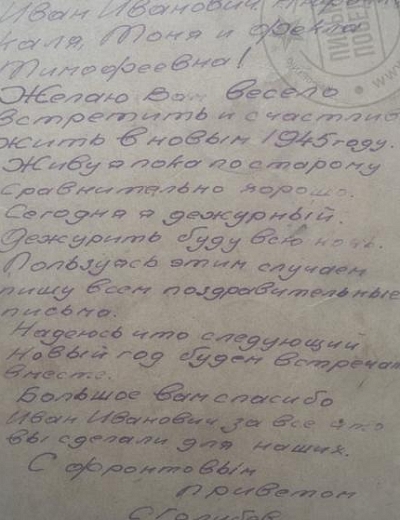 Иван Иванович,
каля, Тоня и Фекла
Тимофеевна!
Желаю Вам весело
встретить и счастливо
жить в новым 1945 году.
Живу я пока по старому
сравнительно хорошо.
Сегодня я дежурный.
Дежурить буду всю ночь.
Пользуясь этим случаем
пишу всем поздравительные
письма.
Надеюсь что следующий
новый год будем встречать
вместе.
Большое вам спасибо
Иван Иванович за все это
вы сделали для наших.
С фронтовым
приветом
С. Голубов
ПИСЬМА
ПОБЕДЫ
www